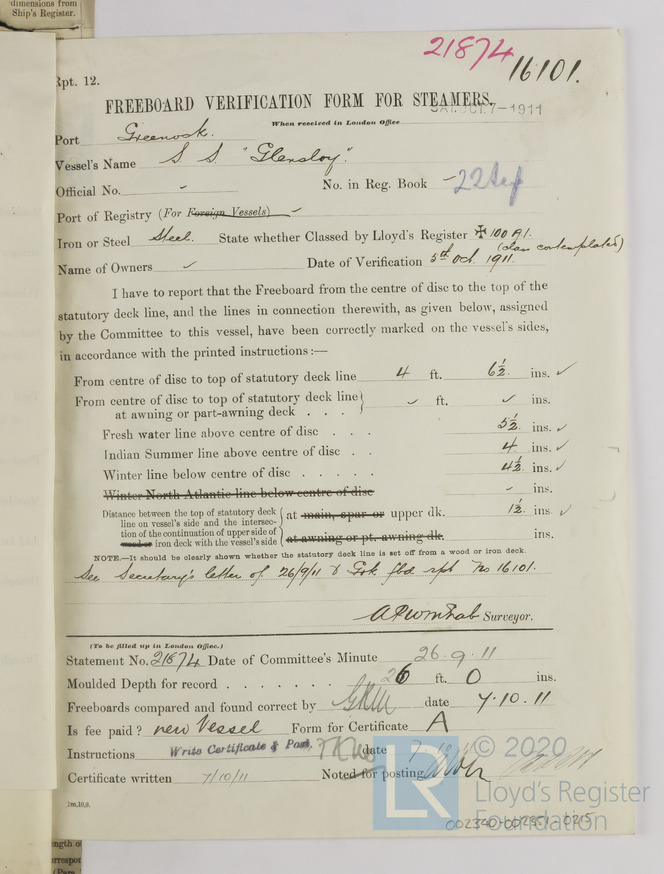 dimensions from
Ship's Register.
21874
16101.
Rpt. 12.
FREEBOARD VERIFICATION FORM FOR STEAMERS.
SAT. OCT. 7-1911
When received in London Office
Port Greenock.
Vessel's Name S S "Glensloy".
Official No. ✓ No. in Reg. Book 22 Sup
Port of Registry (For Foreign Vessels) ✓
Iron or Steel Steel. State whether Classed by Lloyd's Register ✠ 100 A1.
(class contemplated)
Name of Owners ✓ Date of Verification 5th Oct. 1911.
I have to report that the Freeboard from the centre of disc to the top of the
statutory deck line, and the lines in connection therewith, as given below, assigned
by the Committee to this vessel, have been correctly marked on the vessel's sides,
in accordance with the printed instructions:—
From centre of disc to top of statutory deck line 4 ft. 6½ ins. ✓
From centre of disc to top of statutory deck line
at awning or part-awning deck . . . ✓ ft. ✓ ins.
Fresh water line above centre of disc . . . 5½ ins. ✓
Indian Summer line above centre of disc . . 4 ins. ✓
Winter line below centre of disc . . . . . 4½ ins. ✓
Winter North Atlantic line below centre of disc - ins.
Distance between the top of statutory deck
line on vessel's side and the intersec-
tion of the continuation of upper side of
wood or iron deck with the vessel's side
at main, spar or upper dk. 1½ ins. ✓
at awning or pt. awning dk. ins.
NOTE.—It should be clearly shown whether the statutory deck line is set off from a wood or iron deck.
See Secretary's letter of 26/9/11 & Grk fbd rpt No 16101.
Surveyor.
(To be filled up in London Office.)
Statement No. 21874 Date of Committee's Minute 26.9.11
Moulded Depth for record . . . . . . . 26 ft. 0 ins.
Freeboards compared and found correct by date 7.10.11
Is fee paid? new Vessel Form for Certificate A
Instructions Write Certificate & Post, date
Certificate written 7/10/11 Noted for posting
1m,10,9.
© 2020
LR
Lloyd's Register
Foundation
002340-002351-0215